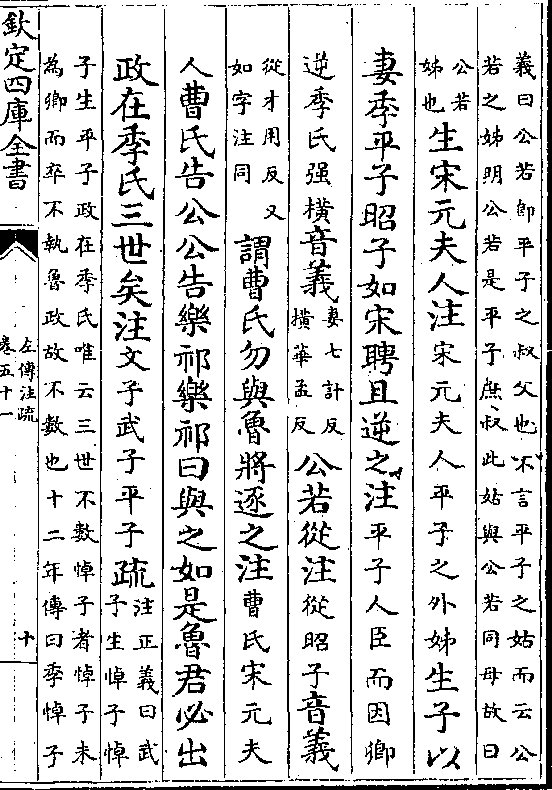 義曰公若即平子之叔父也不言平子之姑而云公
若之姊明公若是平子庶叔此姑與公若同母故曰
公若
姊也
生宋元夫人注宋元夫人平子之外姊生子以
妻季平子昭子如宋聘且逆之注平子人臣而因卿
逆季氏强橫音義
妻七計反
橫華孟反
公若從注從昭子音義
從才用反又
如字注同
謂曹氏勿與魯將逐之注曹氏宋元夫
人曹氏告公公告樂祁樂祁曰與之如是魯君必出
政在季氏三世矣注文子武子平子疏
注正義曰武
子生悼子悼
子生平子政在季氏唯云三世不數悼子者悼子未
為卿而卒不執魯政故不數也十二年傳曰季悼子
欽定四庫全書
左傳注疏
卷五十一
十